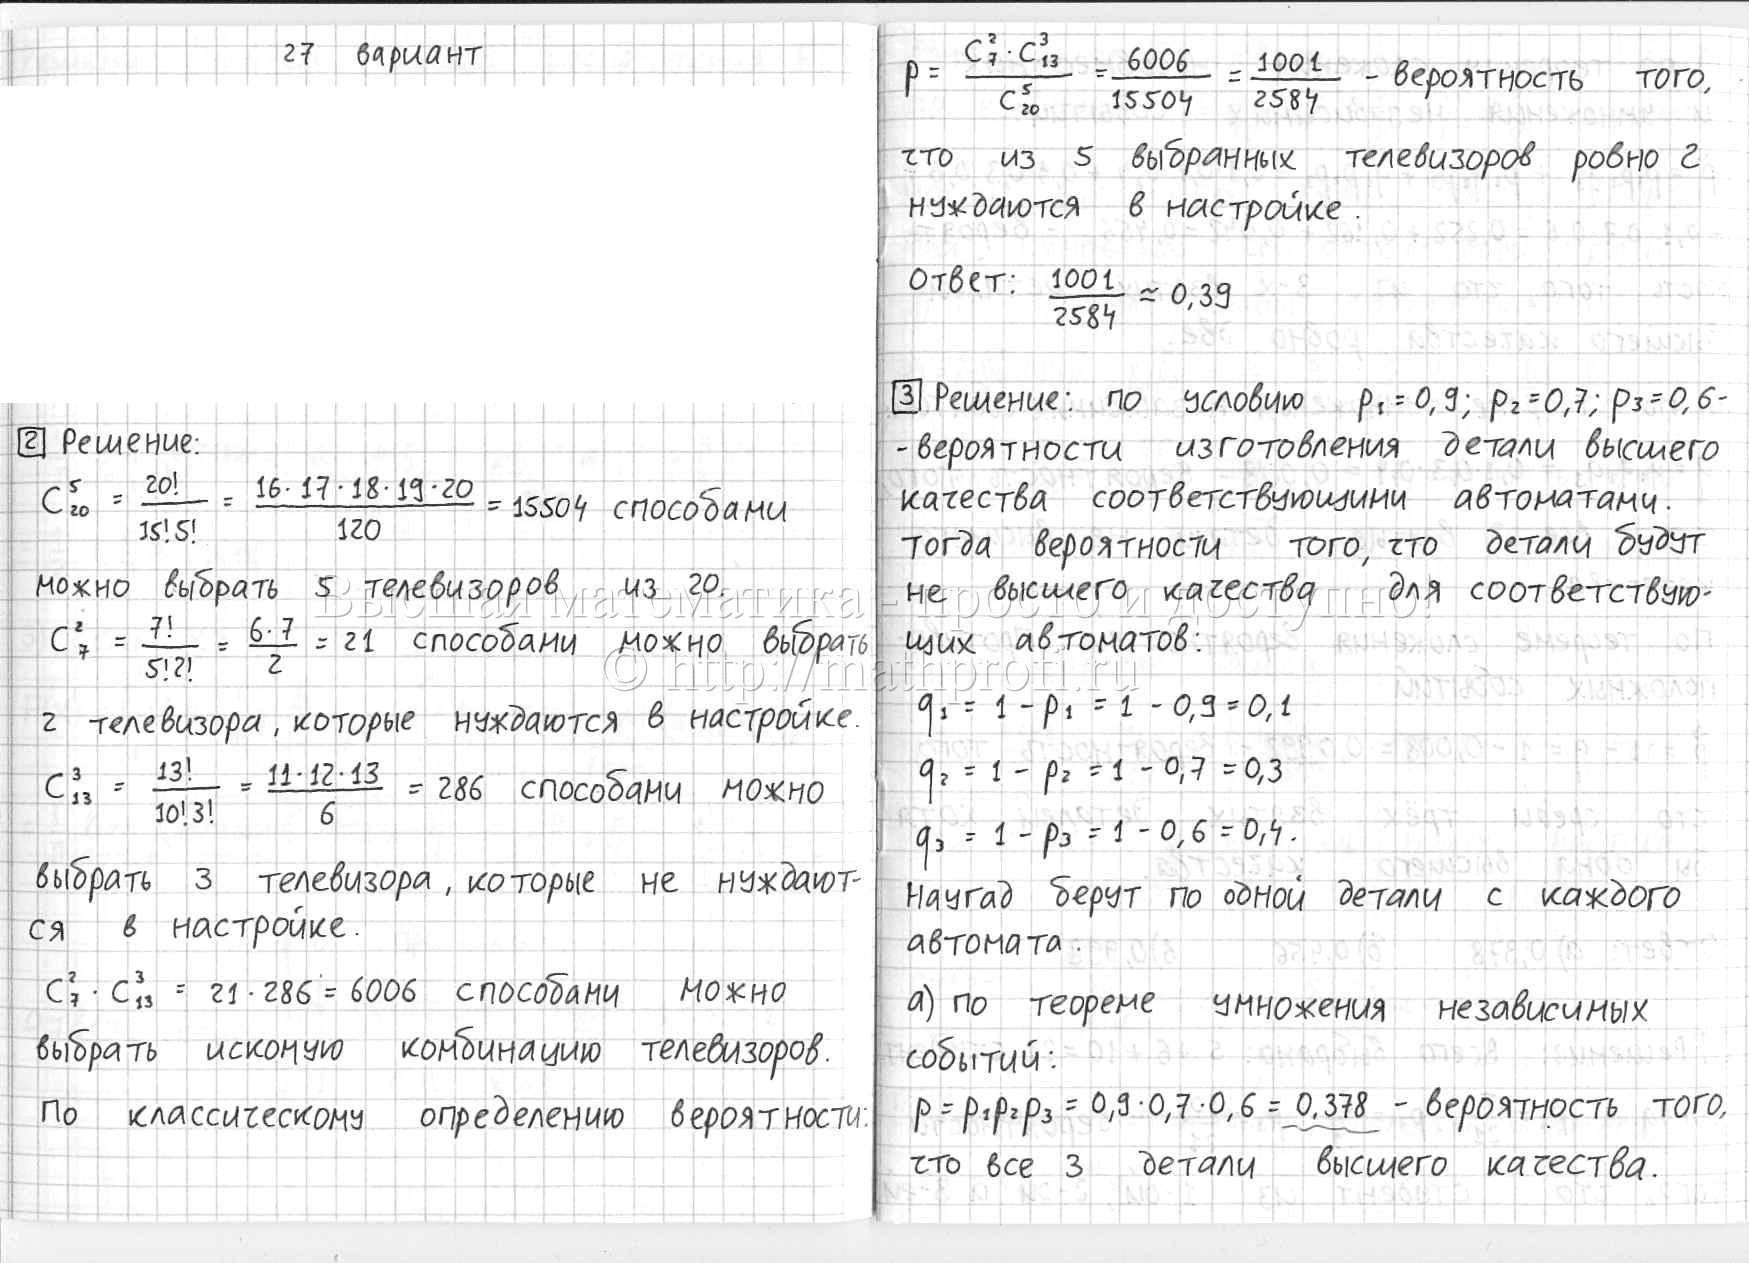 27 вариант
2 Решение:
C⁵₂₀ = 20!/15!5! = 16·17·18·19·20/120 = 15504 способами
можно выбрать 5 телевизоров из 20.
C²₇ = 7!/5!2! = 6·7/2 = 21 способами можно выбрать
2 телевизора, которые нуждаются в настройке.
C³₁₃ = 13!/10!3! = 11·12·13/6 = 286 способами можно
выбрать 3 телевизора, которые не нуждают-
ся в настройке.
C²₇ · C³₁₃ = 21·286 = 6006 способами можно
выбрать искомую комбинацию телевизоров.
По классическому определению вероятности:
p = C²₇·C³₁₃/C⁵₂₀ = 6006/15504 = 1001/2584 - вероятность того,
что из 5 выбранных телевизоров ровно 2
нуждаются в настройке.
Ответ: 1001/2584 ≈ 0,39
3 Решение: по условию p₁=0,9; p₂=0,7; p₃=0,6-
-вероятности изготовления детали высшего
качества соответствующими автоматами.
Тогда вероятности того, что детали будут
не высшего качества для соответствую-
щих автоматов:
q₁ = 1 - p₁ = 1 - 0,9 = 0,1
q₂ = 1 - p₂ = 1 - 0,7 = 0,3
q₃ = 1 - p₃ = 1 - 0,6 = 0,4.
Наугад берут по одной детали с каждого
автомата.
а) по теореме умножения независимых
событий:
p = p₁p₂p₃ = 0,9·0,7·0,6 = 0,378 - вероятность того,
что все 3 детали высшего качества.
Высшая математика – просто и доступно!
© http://mathprofi.ru